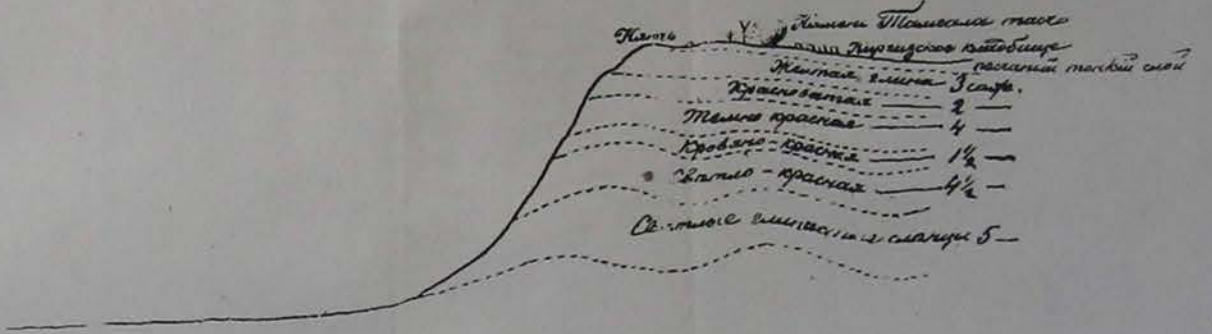 Ключъ
Камень Тамгала тасъ
Киргизское кладбище
песчаный тонкій слой
Желтая глина 3 саж.
Красноватая — 2 —
Темно красная — 4 —
Кровяно-красная — 1½ —
Свѣтло-красная — 4½ —
Свѣтлые глинистые сланцы 5 —